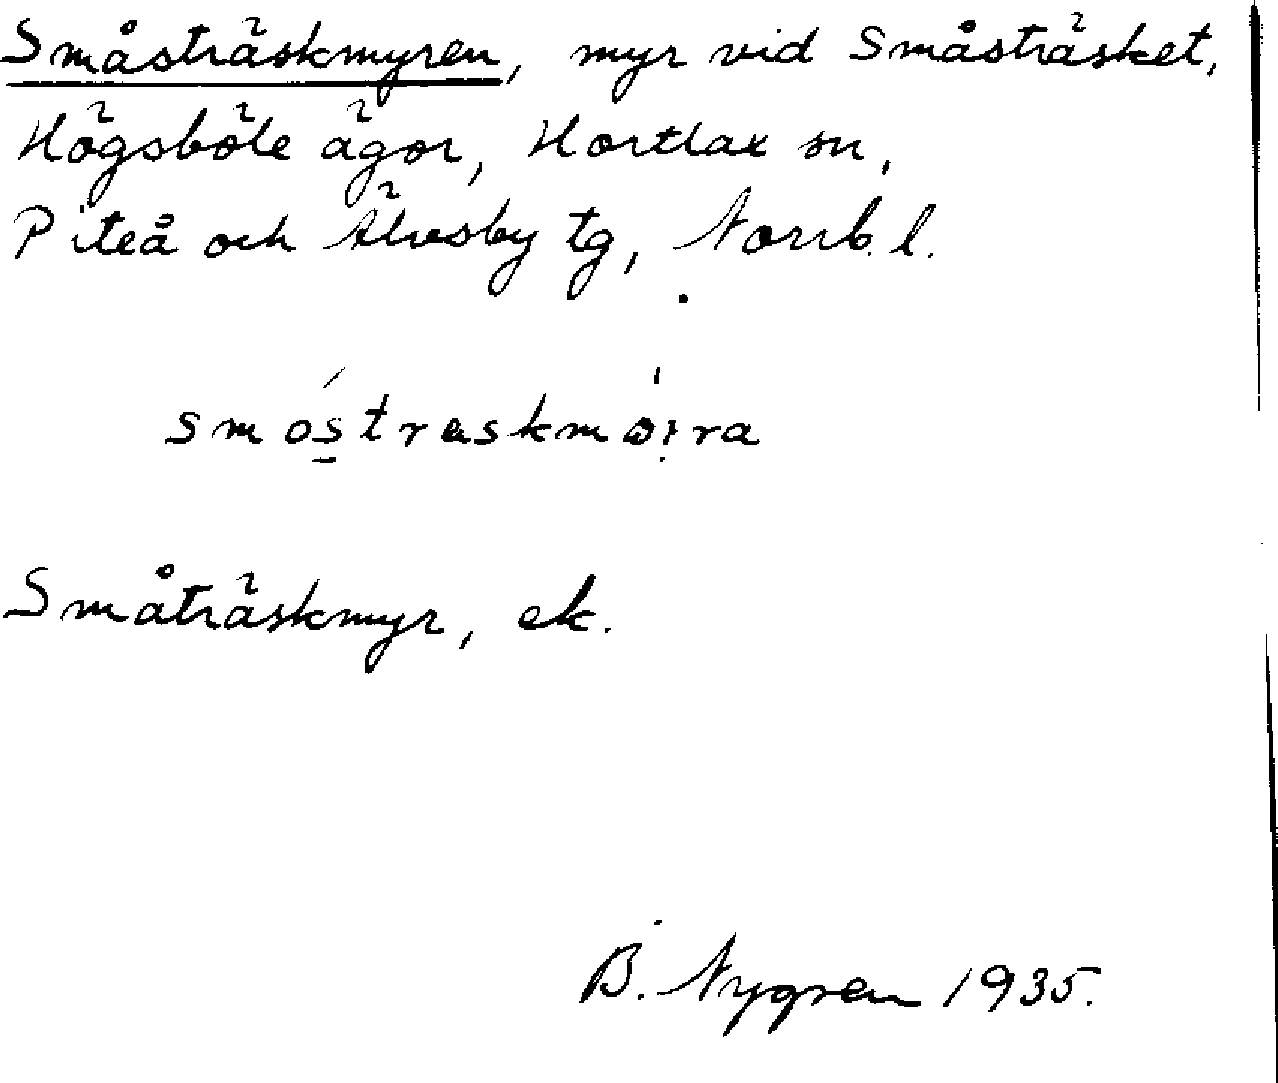 Småsträskmyren, myr vid Småsträsket,
Högsböle ägor, Hortlax sn,
Piteå och Älvsby tg, Norrb. l.
smóstraskmöira
Småträskmyr, ek.
B. Nygren 1935.